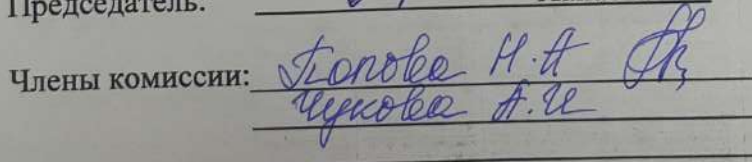 Председатель:
Члены комиссии: Попова Н.А
Чукова А.И